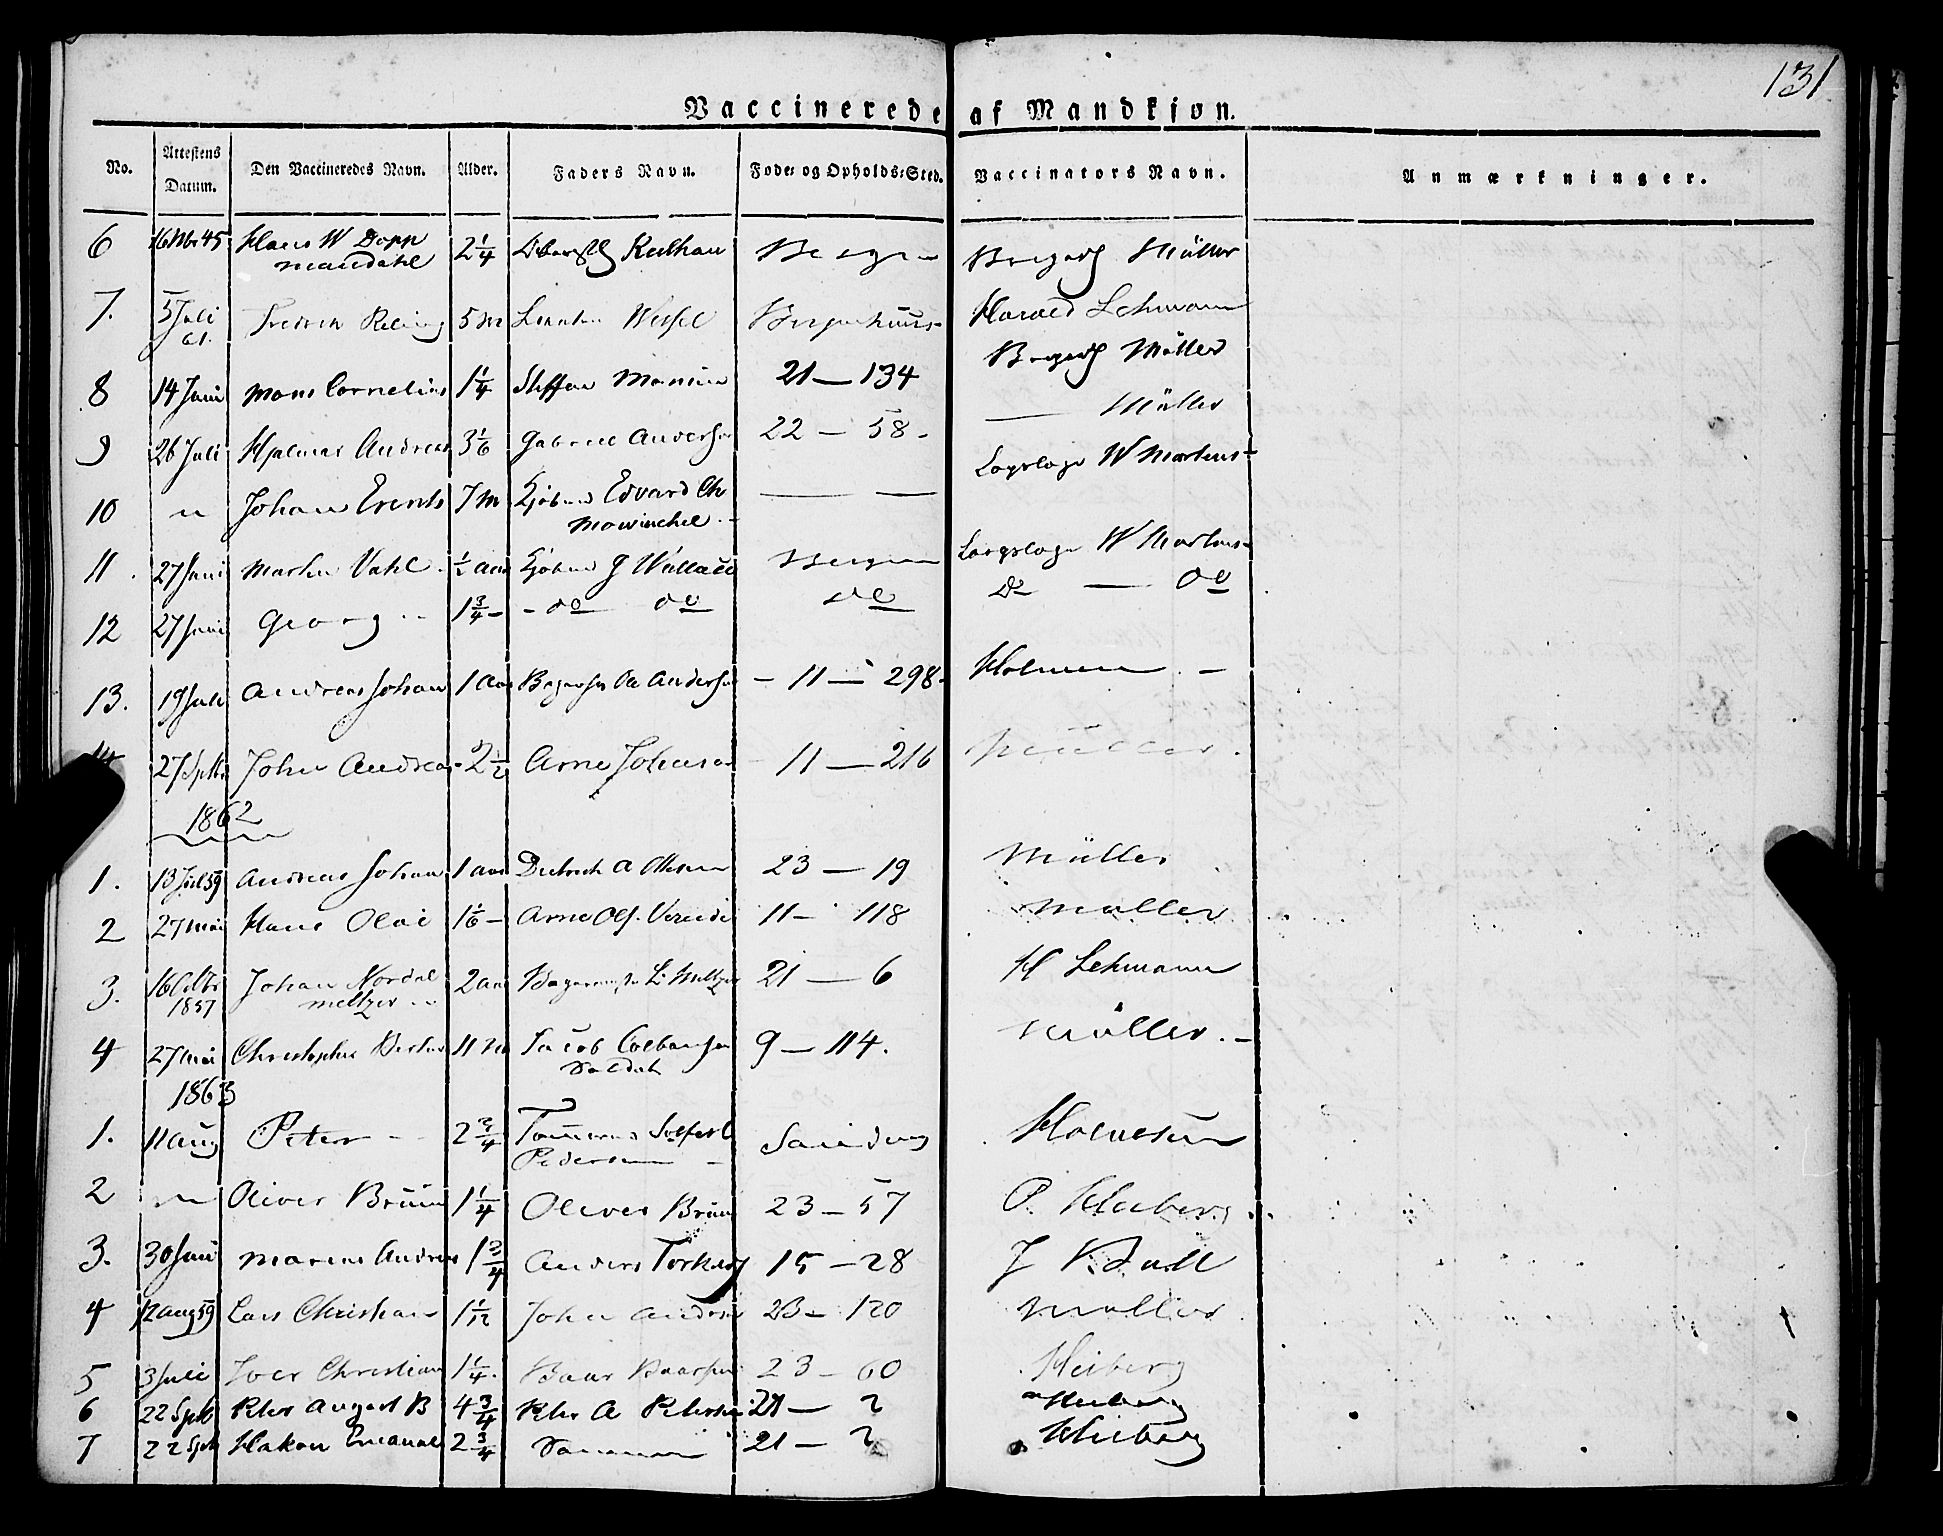 131
Vaccinerede af Mandkjøn.
No. Attestens Datum. Den Vaccineredes Navn. Alder. Faders Navn. Føde- og Opholds-Sted. Vaccinators Navn. Anmærkninger.
6 16 Nbr 45 Hans W Dopp Mandahl 2 1/4 Bergen Müller
7. 5 Juli 61. 5 M Wessel Bergenhuus Harald Lehmann
8 14 Juni Mons Cornelius 1 1/4 Steffen Monsen 21 — 134 Müller
9 26 Juli Hjalmar Andreas 3 1/6 Gabriel Anderssen 22 — 58 - — Müller
10 " Johan Erents 7 M Kjøbmd Edvard Chr Mowinckel — — W Martens
11. 27 Juni Martin Vahl ½ aar Kjøbmd J Wallace Bergen W Martens
12 27 Juni Georg 1 3/4 - do do do Do — do
13. 19 Juli Andreas Johan 1 aar Anderssen - 11 — 298 - Holmsen
14 27 Septbr John Andreas 2 1/2 Arne Johnsen 11 — 216 Müller.
1862
1. 13 Juli 59 Andreas Johan 1 aar Diedrich A Olsen 23 — 19 Müller
2 27 Mai Hans Olai 1 1/6 - Arne Ols. 11 — 118 Müller
3. 16 Octbr 1857 Johan Nordal Meltzer 2 aar L. Meltzer 21 — 6 H Lehmann
4 27 Mai Christopher 11 M Jacob Colbensen Soldat 9 — 114. Müller. -
1863
1. 11 Aug Peter 2 3/4 Pedersen Sandvig
2 " Oliver Bruun 1 1/4 Oliver Bruun 23 — 57 P. Heiberg
3. 30 Juni Marius Andreas 1 3/4 Anders 15 — 28 J
4 12 Aug 59 Lars Christian 1 1/12 John 23 — 120 Müller
5 3 Juli Iver Christian 1 1/4. Baar Baarsen 23 — 60 Heiberg
6 22 Septb Peter August B 4 3/4 Peter A Petersen 21 — 2 Heiberg
7 22 Sptb Hakon Emanuel 2 3/4 Samme 21 — 2 Heiberg